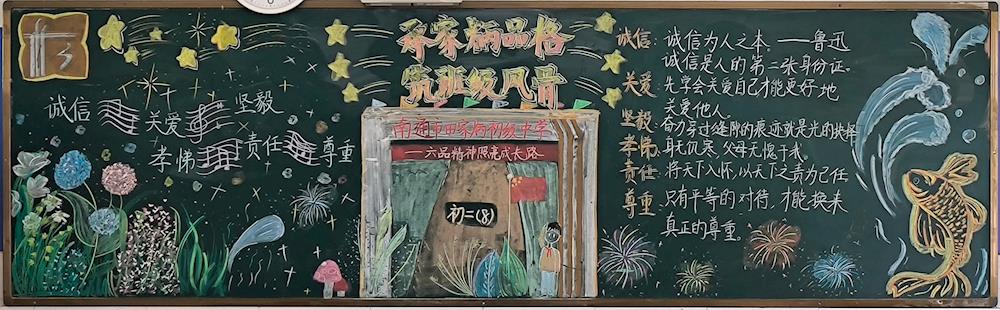 诚信
关爱
坚毅
孝悌
责任
尊重
承家炳品格
筑班级风骨
南通市田家炳初级中学
——六品精神照亮成长路
初二(8)
诚信:诚信为人之本。——鲁迅
诚信是人的第二张身份证。
关爱:先学会关爱自己才能更好地
关爱他人。
坚毅:奋力穿过缝隙的痕迹就是光的抉择
孝悌:身无饥寒,父母无愧于我。
责任:将天下入怀,以天下之责为己任
尊重:只有平等的对待,才能换来
真正的尊重。